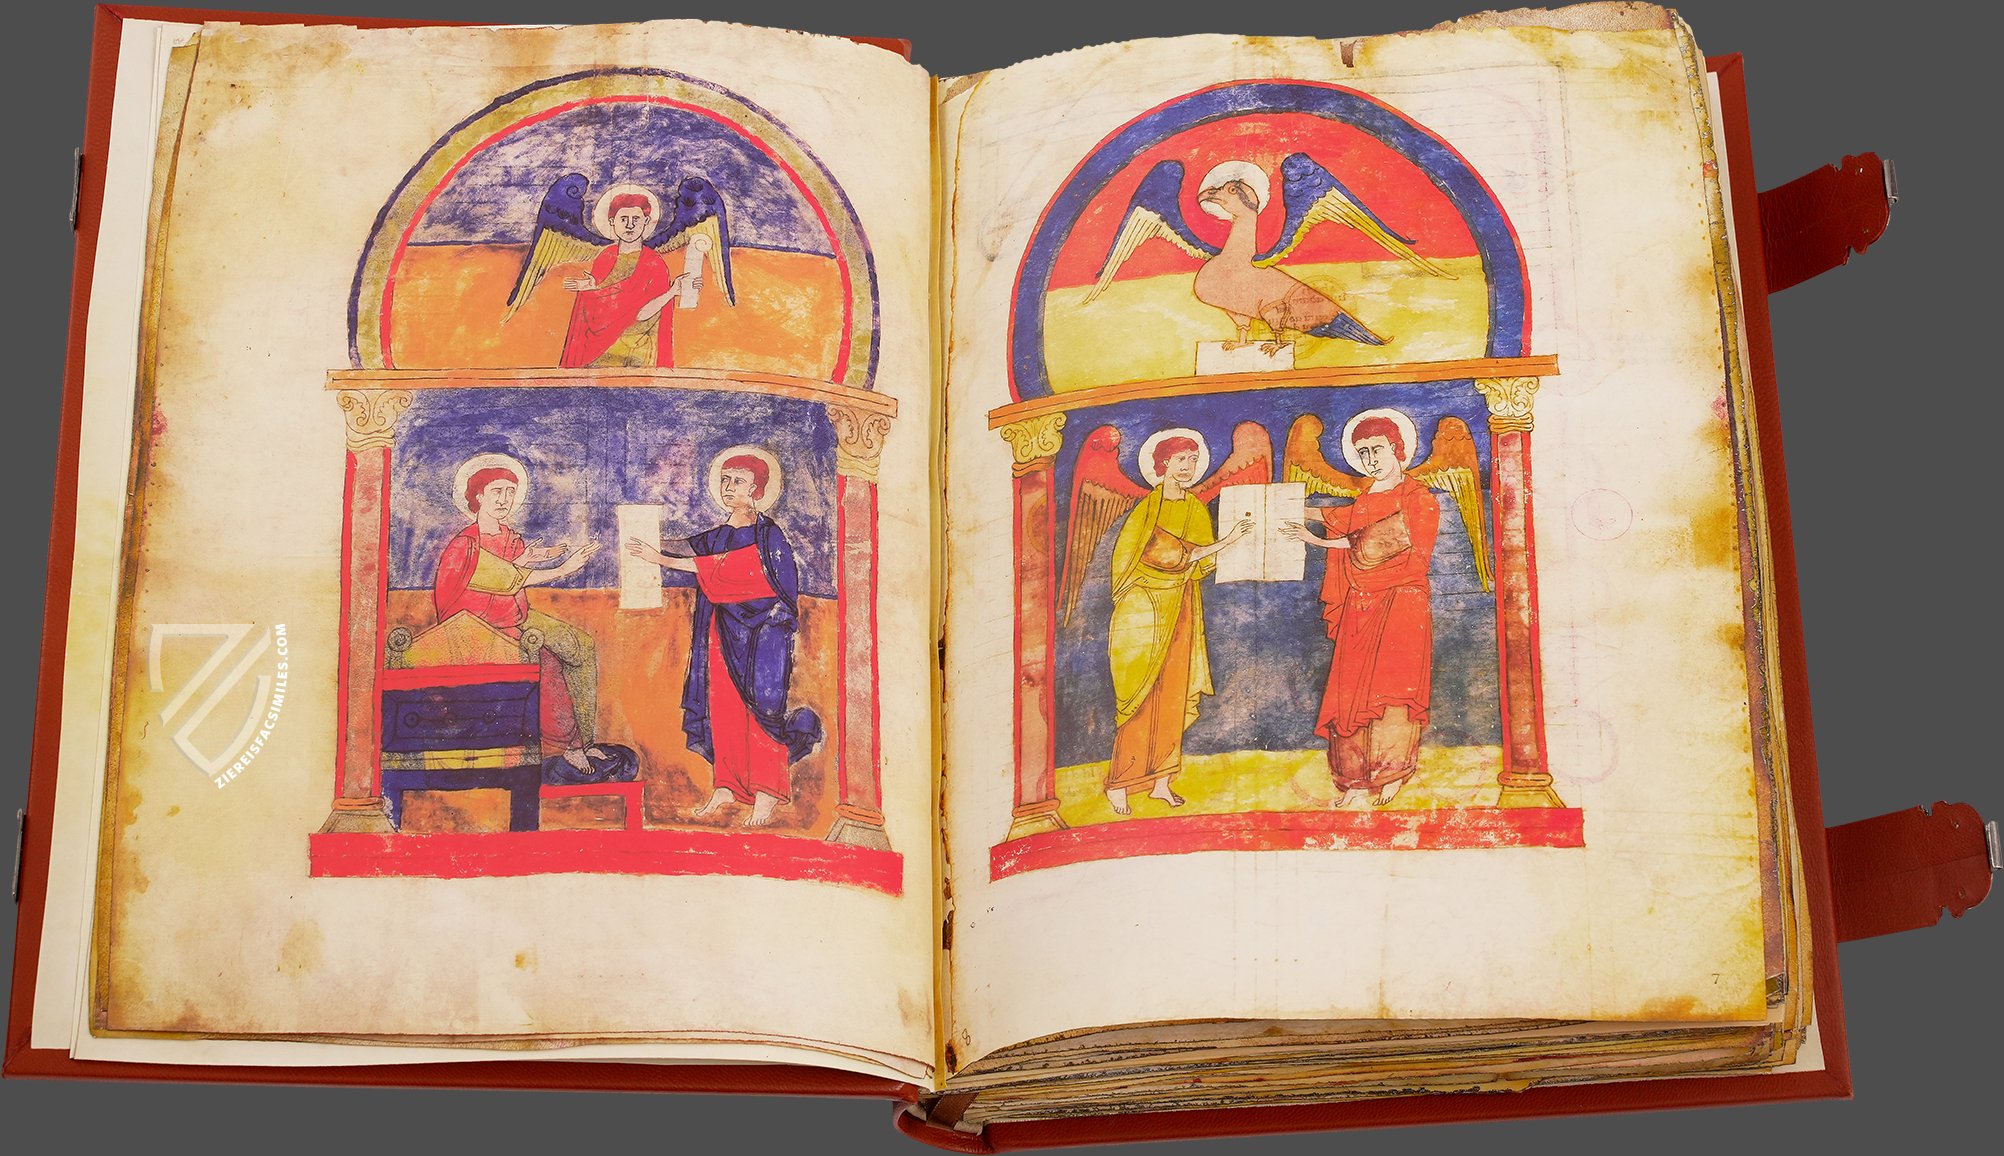 ZIEREISFACSIMILES.COM
8
7